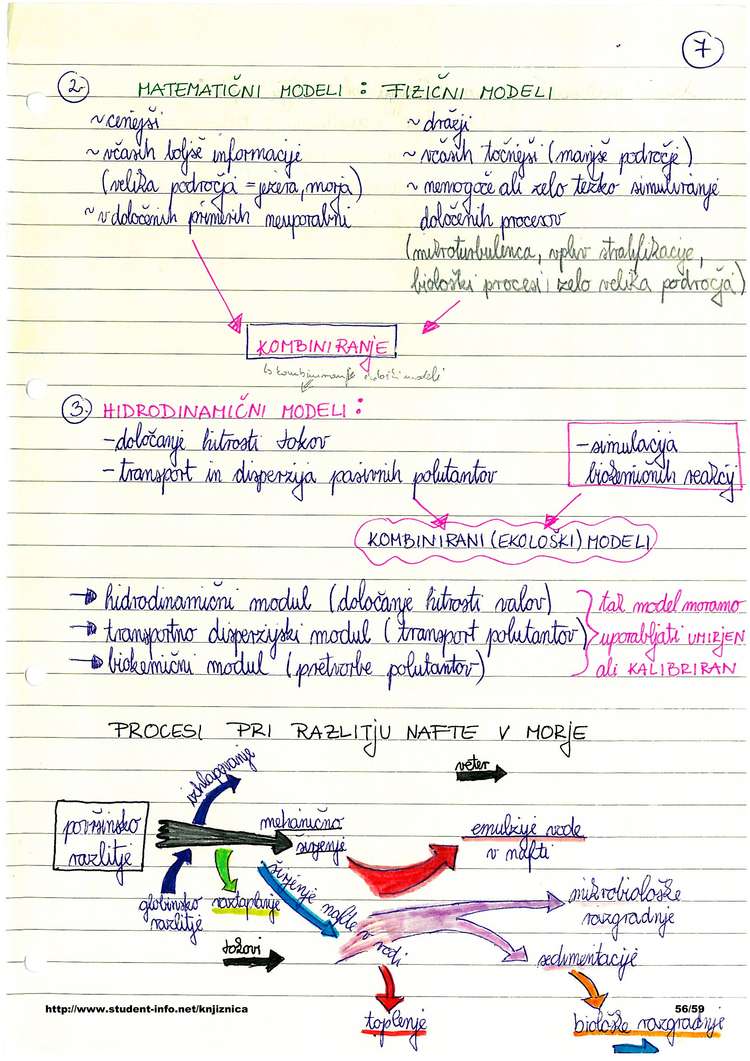 7
2. MATEMATIČNI MODELI : FIZIČNI MODELI
~ cenejši
~ včasih boljše informacije
(velika področja = jezera, morja)
~ v določenih primerih neuporabni
~ dražji
~ včasih točnejši (manjše področje)
~ nemogoče ali zelo težko simuliranje
določenih procesov
(mikroturbulenca, vpliv stratifikacije,
biološki procesi, zelo velika področja)
KOMBINIRANJE
3. HIDRODINAMIČNI MODELI :
- določanje hitrosti tokov
- transport in disperzija pasivnih polutantov
- simulacija
biokemičnih reakcij
KOMBINIRANI (EKOLOŠKI) MODELI
hidrodinamični modul (določanje hitrosti valov)
transportno disperzijski modul (transport polutantov)
biokemični modul (pretvorbe polutantov)
tak model moramo
uporabljati UMIRJEN
ali KALIBRIRAN
PROCESI PRI RAZLITJU NAFTE V MORJE
izhlapevanje
veter
površinsko
razlitje
mehanično
širjenje
emulzije vode
v nafti
globinsko
razlitje
raztapljanje
širjenje nafte v vodi
mikrobiološke
razgradnje
tokovi
sedimentacije
toplenje
biološke razgradnje
http://www.student-info.net/knjiznica
56/59